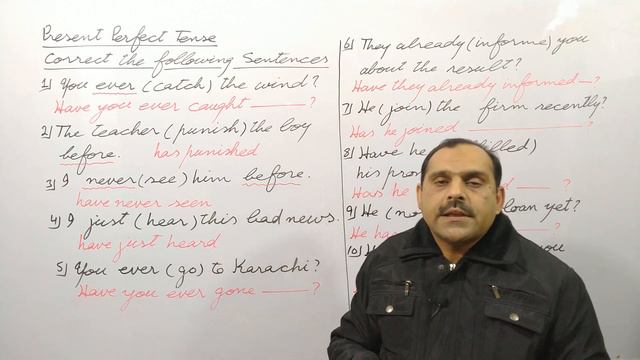 Present Perfect Tense
Correct the following Sentences
1) You ever (catch) the wind?
Have you ever caught ———?
2) The teacher (punish) the boy
before. has punished
3) I never (see) him before.
have never seen
4) I just (hear) this bad news.
have just heard
5) You ever (go) to Karachi?
Have you ever gone ———?
6) They already (informe) you
about the result?
Have they already informed —?
7) He (join) the firm recently?
Has he joined ———?
8) Have he filled)
his
Has he ——— ?
9) He ( loan yet?
He
10) you